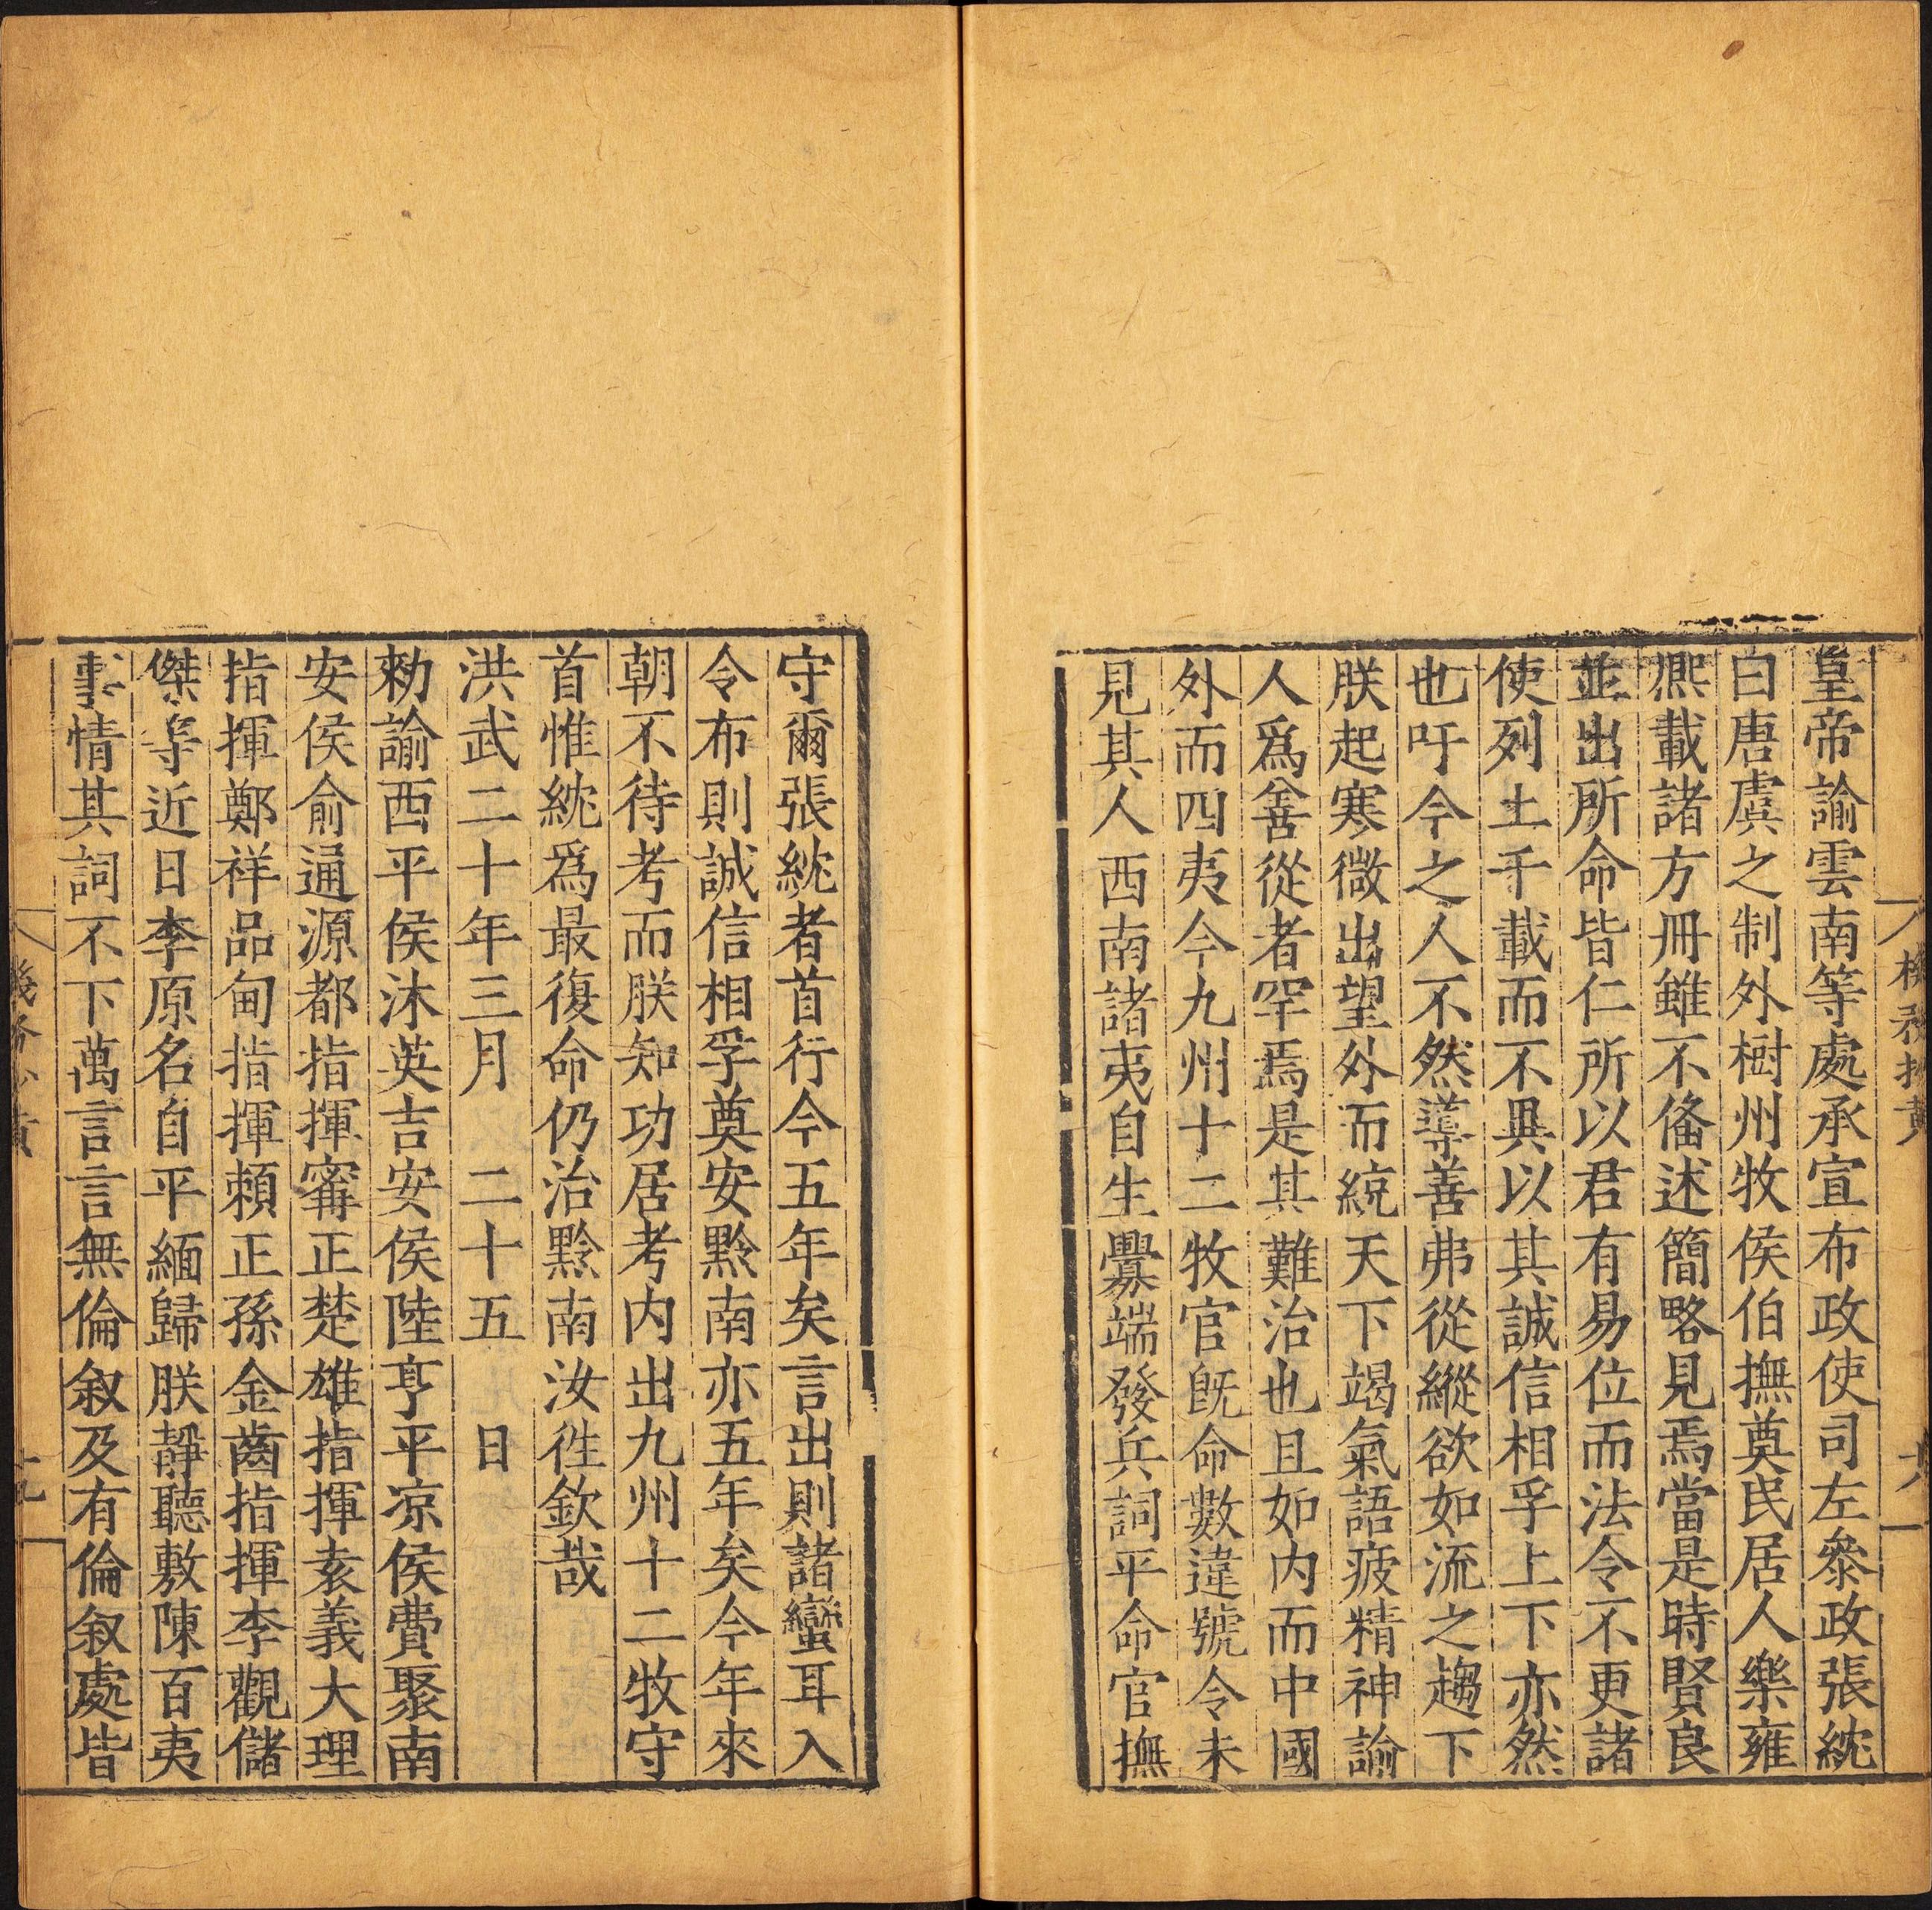 皇帝諭雲南等處承宣布政使司左叅政張紞
曰唐虞之制外樹州牧侯伯撫奠民居人樂雍
熈載諸方冊雖不俻述簡略見焉當是時賢良
並出所命皆仁所以君有易位而法令不更諸
使列土千載而不異以其誠信相孚上下亦然
也吁今之人不然導善弗從縱欲如流之趨下
朕起寒微出望外而統天下竭氣語疲精神諭
人爲善從者罕焉是其難治也且如内而中國
外而四夷今九州十二牧官旣命數違號令未
見其人西南諸夷自生釁端發兵詞平命官撫
守爾張紞者首行今五年矣言出則諸蠻耳入
令布則誠信相孚奠安黔南亦五年矣今年來
朝不待考而朕知功居考内出九州十二牧守
首惟紞爲最復命仍治黔南汝徃欽哉
洪武二十年三月 二十五 日
勑諭西平侯沐英吉安侯陸亨平凉侯費聚南
安侯俞通源都指揮甯正楚雄指揮袁義大理
指揮鄭祥品甸指揮賴正孫金齒指揮李觀儲
傑等近日李原名自平緬歸朕靜聽敷陳百夷
事情其詞不下萬言言無倫叙及有倫叙處皆